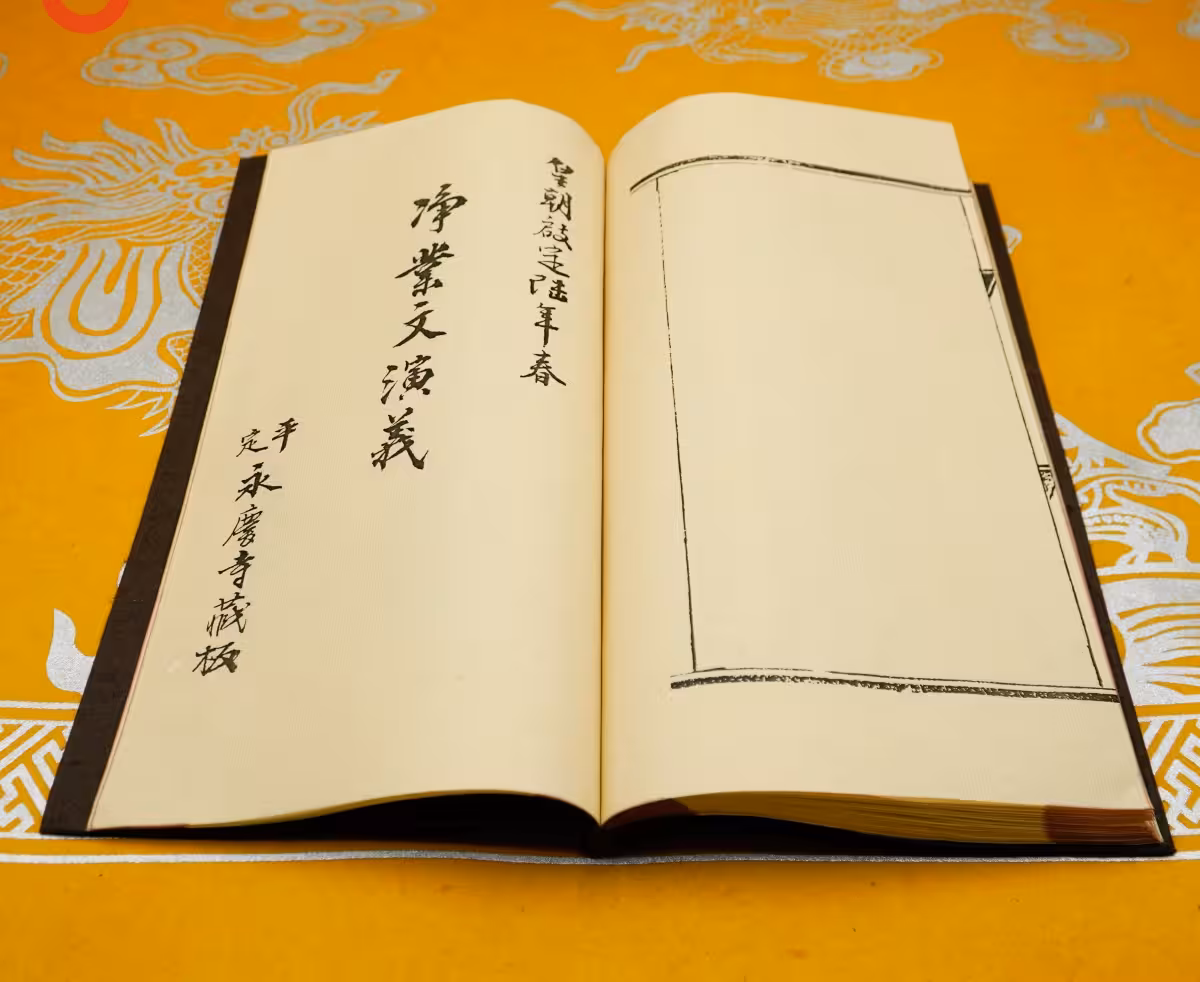 皇朝啟定陸年春
淨業文演義
平定永慶寺藏板